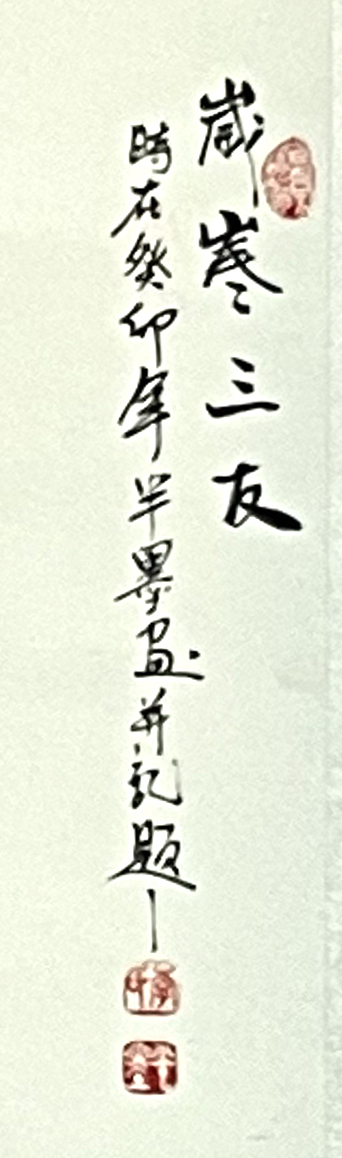 歲寒三友
時在癸卯年半墨画並記題